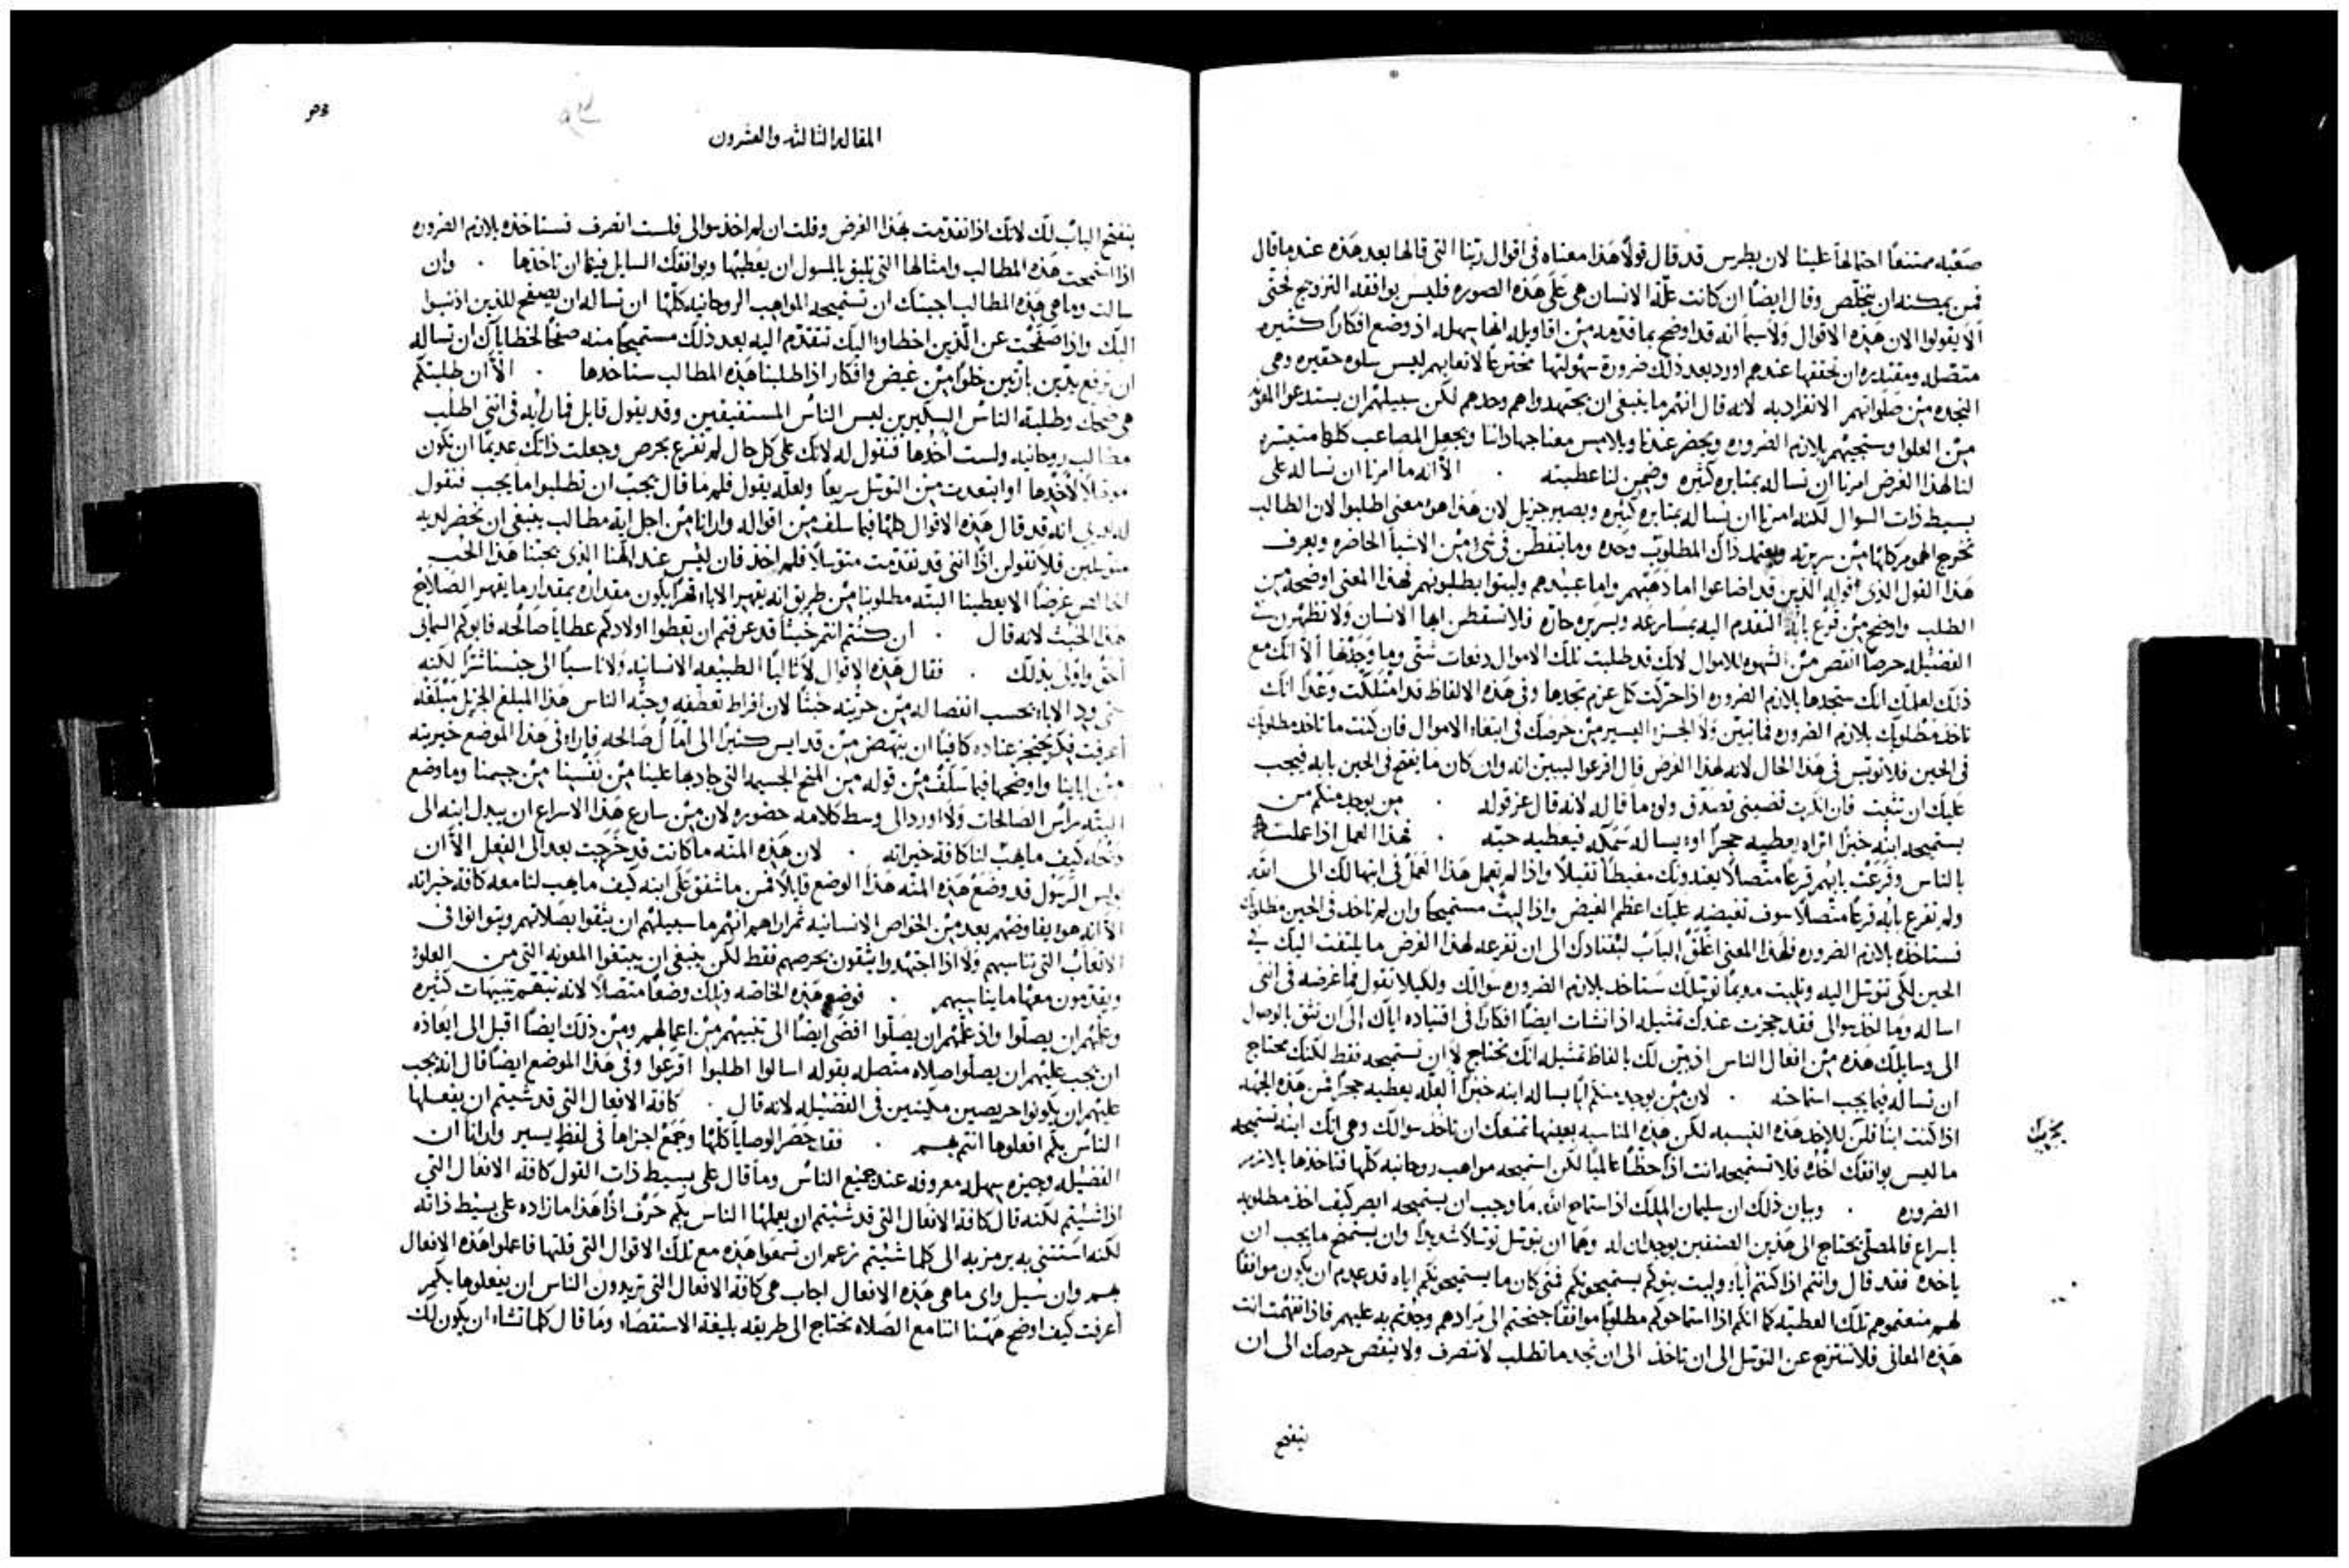 صعبه ممتنعًا احتمالها علينا لان بطرس قد قال قولًا هذا معناه في اقوال ربنا التي قالها بعد هذه عند ما قال
فمن يمكنه ان يتخلص وقال ايضًا ان كانت علّة الانسان هي على هذه الصوره فليس يوافقه التزويج فحتى
ألا يقولوا الان هذه الاقوال ولاسيما انه قد اوضح بما قدمه من اقاويله انها سهله اذ وضع افكارًا كثيره
متصله ومقتدره ان تحققها عندهم اورد بعد ذلك ضرورة سهولتها مخترعًا لاتعابهم ليس سلوه حقيره وهي
النجده من صلواتهم الانفراد به لانه قال انتم ما ينبغي ان يجتهدوا هم وحدهم لكن سبيلهم ان يستدعوا المعونه
من العلو وستجيهم بلازم الضروره ويحضر عندنا ويلامس معنا جهاداتنا ويجعل المصاعب كلها متيسره
لنا لهذا الغرض امرنا ان نساله بمثابره كثيره وضمن لنا عطيته . الا انه ما امرنا ان نساله على
بسيط ذات السوال لكنه امرنا ان نساله بمثابره كثيره وبصبر جزيل لان هذا هو معنى اطلبوا لان الطالب
يخرج الهموم كلها من سريرته ويعتمد ذاك المطلوب وحده وما يتفطن في شيء من الاشيا الحاضره ويعرف
هذا القول الذي اقوله الذين قد اضاعوا اما ذهبهم واما عبيدهم ولبثوا يطلبونهم فهذا المعنى اوضحه من
الطلب واوضح من قرع بابه التقدم اليه بمسارعه وبسريره حاره فلا تسقطن ايها الانسان ولا تظهرن في
الفضيله حرصًا انقص من الشهوه للاموال لانك قد طلبت تلك الاموال دفعات شتى وما وجدتها ألا انك مع
ذلك لعلمك انك ستجدها بلازم الضروره اذا حركت كل عزم تجدها وفي هذه الالفاظ قد امتلكت وعدًا انك
تاخذ مطلوبك بلازم الضروره فما تبين ولا الجزء اليسير من حرصك في ابتغاء الاموال فان كنت ما تاخذ مطلوبك
في الحين فلا تويس في هذا الحال لانه لهذا الغرض قال اقرعوا ليبين انه وان كان ما يفتح في الحين بابه فيجب
عليك ان تثبت فان انكرت قضيتي فصدق ولو ما قاله لانه قال عز قوله . من يوجد منكم من
يستميحه ابنه خبزًا اتراه يعطيه حجرًا او يساله سمكه فيعطيه حيّه . فهذا العمل اذا عملته
بالناس وقرعت بابهم قرعًا متصلًا يعتدونك مغيظًا ثقيلًا واذا لم تعمل هذا العمل في ابتهالك الى الله
ولم تقرع بابه قرعًا متصلًا سوف تغيضه عليك اعظم الغيض واذا لبثت مستميحًا وان لم تاخذ في الحين مطلوبك
فستاخذه بلازم الضروره فلهذا المعنى اغلق الباب ليقتادك الى ان تقرعه لهذا الغرض ما يلتفت اليك في
الحين لكي تتوسل اليه وتلبث مديمًا توسلك ستاخذ بلازم الضروره سوالك ولكيلا تقول فما غرضه في انني
اساله وما اخذ سوالي فقد حجزت عندك تمثيله اذ انشات ايضًا افكارًا في اقتياده اياك إلى ان تثق بالوصول
الى وسايلك هذه من افعال الناس اذ بين لك بالفاظ تمثيله انك تحتاج لا ان تستميحه فقط لكنك تحتاج
ان تساله فيما يجب استماحته . لان من يوجد منكم ابًا يساله ابنه خبزًا ألعله يعطيه حجرًا فمن هذه الجهه
اذا كنت ابنًا فلن للاخذ هذه النسبه لكن هذه المناسبه بعينها تمنعك ان تاخذ سوالك وهي انك ابنه تستميحه
ما ليس يوافقك اخذه فلا تستميحه انت اذًا حظًا عالميًا لكن استميحه مواهب روحانيه كلها فتاخذها بلازم
الضروره . وبيان ذلك ان سليمان الملك اذ استماح الله ما وجب ان يستميحه ابصر كيف اخذ مطلوبه
باسراع فالمصلي يحتاج الى هذين الصنفين يوجدان له وهما ان يتوسل توسلًا شديدًا وان يستمنح ما يجب ان
ياخذه فقد قال وانتم اذا كنتم اباء ولبث بنوكم يستميحونكم فمتى كان ما يستميحونكم اياه قد عدم ان يكون موافقًا
لهم منعتموهم تلك العطيه كما انكم اذا استماحوكم مطلوبًا موافقًا جنحتم الى مرادهم وجدتم به عليهم فاذا تفهمت انت
هذه المعاني فلا تنتزح عن التوسل الى ان تاخذ الى ان تجد ما تطلب لا تنصرف ولا ينقص حرصك الى ان
ينفتح
المقاله الثالثه والعشرون
ينفتح الباب لك لانك اذا تقدمت بهذا الغرض وقلت ان لم اخذ سوالي فلست انصرف فستاخذه بلازم الضروره
اذا استمحت هذه المطالب وامثالها التي تليق بالمسول ان يعطيها ويوافقك السايل فيما ان تاخذها . وان
سالت وما هي هذه المطالب اجبتك ان تستميحه المواهب الروحانيه كلها ان تساله ان يصفح للذين اذنبوا
اليك واذا صفحت عن الذين اخطاوا اليك تتقدم اليه بعد ذلك مستميحًا منه صفحًا لخطاياك ان تساله
ان ترفع يدين بارتين خلوًا من غيض وافكار اذا طلبنا هذه المطالب سناخذها . الا ان طلبتكم
هي ضحك وطلبة الناس السكيرين ليس الناس المستفيقين وقد يقول قايل فما رايه في انني اطلب
مطالب روحانيه ولست اخذها فنقول له لانك على كل حال لم تقرع بحرص وجعلت ذاتك عديمًا ان تكون
موهلًا لاخذها او ابتعدت من التوسل سريعًا ولعله يقول فلم ما قال يجب ان تطلبوا ما يجب فنقول
انه قد قال هذه الاقوال كلها فيما سلف من اقواله وارانا من اجل اية مطالب ينبغي ان نحضر لديه
متوسلين فلا تقولن اذًا انني قد تقدمت متوسلًا فلم اخذ فان ليس عند الهنا الذي يحبنا هذا الحب
الخالص غرضًا الا يعطينا البته مطلوبنا من طريق انه يقهر الاباء قهرًا يكون مقداره بمقدار ما يقهر الصلاح
هذا الخبث لانه قال . ان كنتم انتم خبثاء قد عرفتم ان تعطوا اولادكم عطايا صالحه فابوكم السماي
احق واولى بذلك . فقال هذه الاقوال لا ثالبًا الطبيعه الانسانيه ولا ناسبًا الى جنسنا شرًا لكنه
سمى ود الاباء بحسب انفصاله من خريته خبثًا لان افراط تعطفه وحبه الناس هذا المبلغ الجزيل مبلغه
أعرفت فكر يحتجز عتاده كافيًا ان ينهض من قد ايس كثيرًا الى امال صالحه فارا في هذا الموضع خيريته
من ابانا واوضحها فيما سلف من قوله من المنح الجسيمه التي جاد بها علينا من نفسنا من جسمنا وما وضع
البته راس الصالحات ولا اورد الى وسط كلامه حضوره لان من سارع هذا الاسراع ان يبذل ابنه الى
كيف ما يهب لنا كافة خيراته . لان هذه المنّه ما كانت قد خرجت بعد الى الفعل الا ان
بولس الرسول قد وضع هذه المنه هذا الوضع قايلًا فمن ما شفق على ابنه كيف ما يهب لنا معه كافة خيراته
الا انه هو يفاوضهم بعد من الخواص الانسانيه ثم اراهم انهم ما سبيلهم ان يثقوا بصلاتهم ويتوانوا في
الاتعاب التي تناسبهم ولا اذا اجتهدوا يثقون بحرصهم فقط لكن ينبغي ان يبتغوا المعونه التي من العلو
ويقدمون معها ما يناسبهم . فوضع هذه الخاصه وتلك وضعًا متصلًا لانه نبههم تنبيهات كثيره
وعلمهم ان يصلوا واذ علمهم ان يصلوا افضى ايضًا الى تنبيههم من اعمالهم ومن ذلك ايضًا اقبل الى ايعاذه
ان يجب عليهم ان يصلوا صلاه متصله بقوله اسالوا اطلبوا اقرعوا وفي هذا الموضع ايضًا قال انه يجب
عليهم ان يكونوا حريصين مكيثين في الفضيله لانه قال . كافة الافعال التي قد شيتم ان يفعلها
الناس بكم افعلوها انتم بهم . فقد حصر الوصايا كلها وجمع اجزاها في لفظ يسير وارانا ان
الفضيله وجيزه سهله معروفه عند جميع الناس وما قال على بسيط ذات القول كافة الافعال التي
اذا شيتم لكنه قال كافة الافعال التي قد شيتم ان يعملها الناس بكم حرف اذًا هذا ما زاده على بسيط ذاته
لكنه استثنى به يرمز به الى كلما شيتم زعم ان تسمعوا هذه مع تلك الاقوال التي قلتها فاعملوا هذه الافعال
بهم وان سيل واي ما هي هذه الافعال اجاب هي كافة الافعال التي تريدون الناس ان يفعلوها بكم
أعرفت كيف اوضح ههنا اننا مع الصلاه نحتاج الى طريقه بليغة الاستقصاء وما قال كلما تشاء ان يكون لك